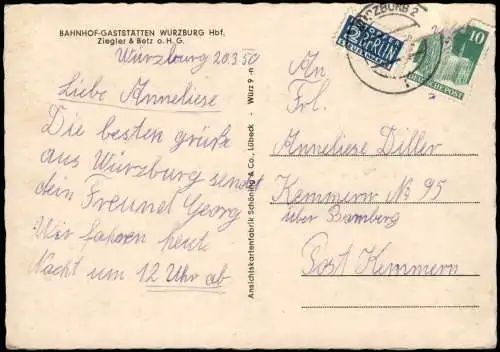 BAHNHOF-GASTSTÄTTEN WÜRZBURG Hbf.
Ziegler & Betz o. H. G.
Würzburg 20.3.50
Liebe Anneliese
Die besten grüße
aus Würzburg sendet
dein Freund Georg
Wir fahren heute
Nacht um 12 Uhr ab
Ansichtskartenfabrik Schöning & Co., Lübeck - Würz 9 -n
WÜRZBURG 2
2 NOTOPFER
BERLIN
STEUERMARKE
10
DEUTSCHE POST
An
Frl.
Anneliese Diller
Kemmern No 95
über Bamberg
Post Kemmern